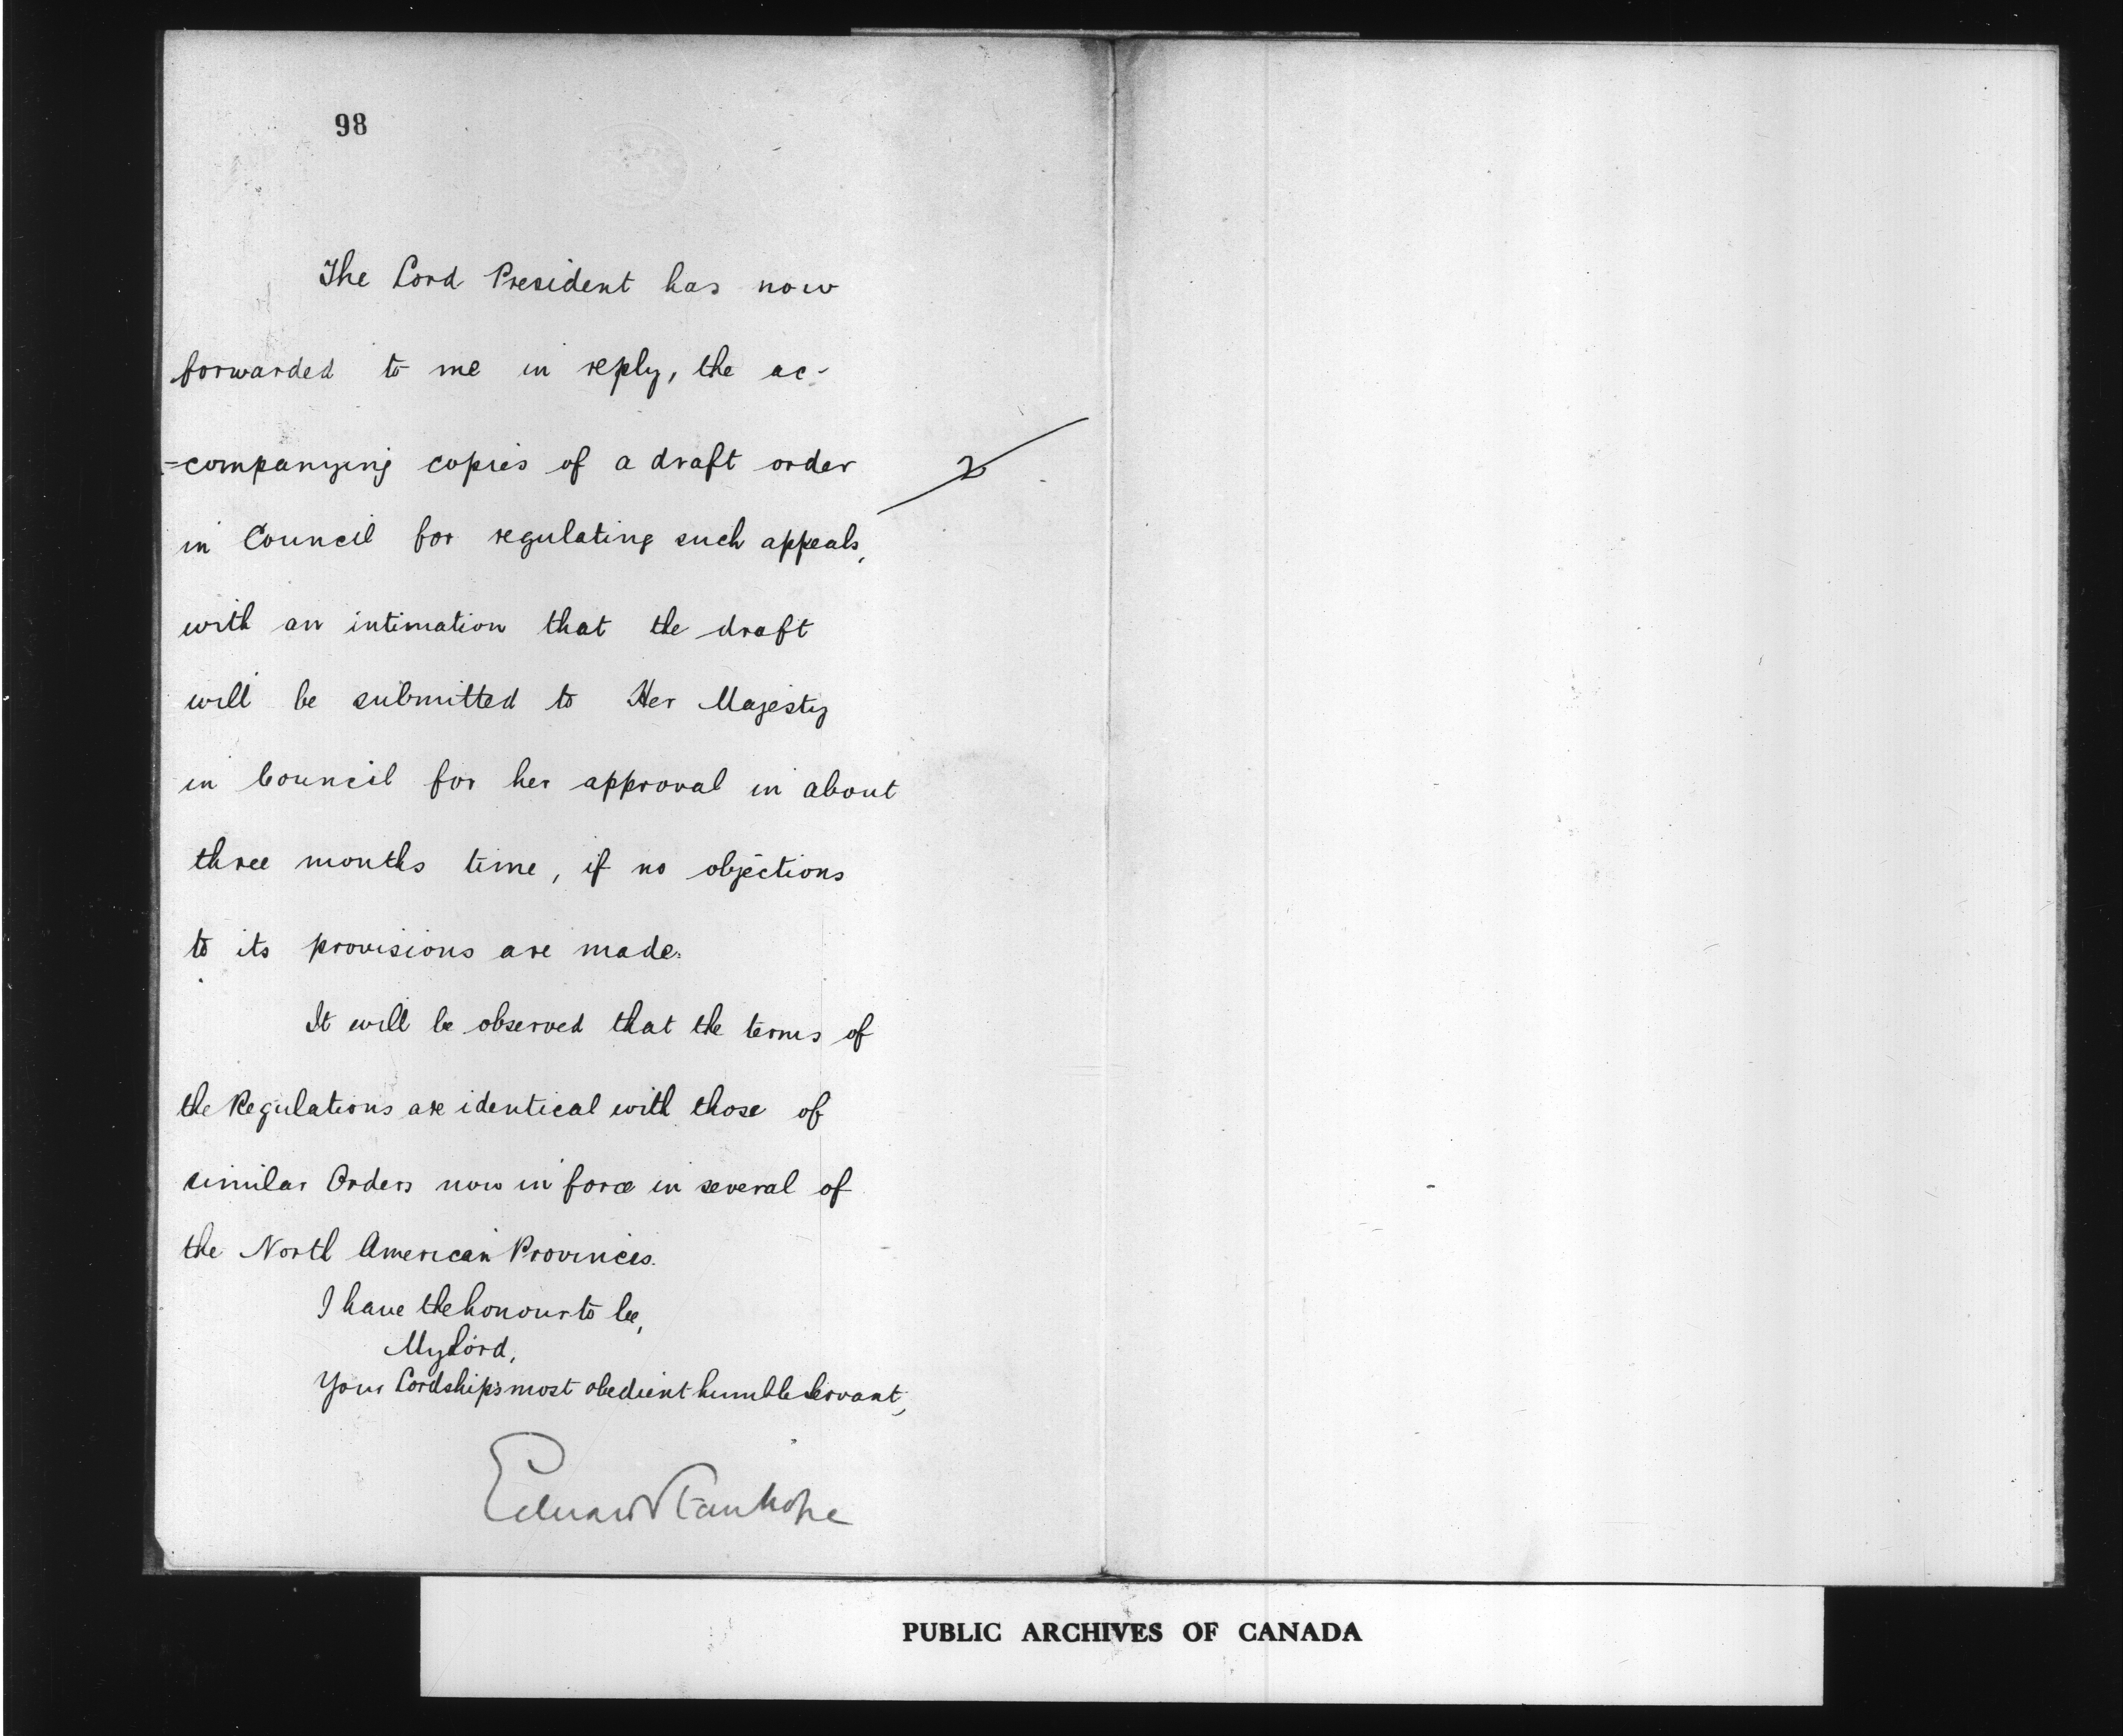 98
The Lord President has now
forwarded to me in reply, the ac-
=companying copies of a draft order
2
in Council for regulating such appeals,
with an intimation that the draft
will be submitted to Her Majesty
in Council for her approval in about
three months time, if no objections
to its provisions are made.
It will be observed that the terms of
the Regulations are identical with those of
similar Orders now in force in several of
the North American Provinces.
I have the honour to be,
My Lord,
Your Lordship's most obedient humble Servant,
Edward Stanhope
PUBLIC ARCHIVES OF CANADA